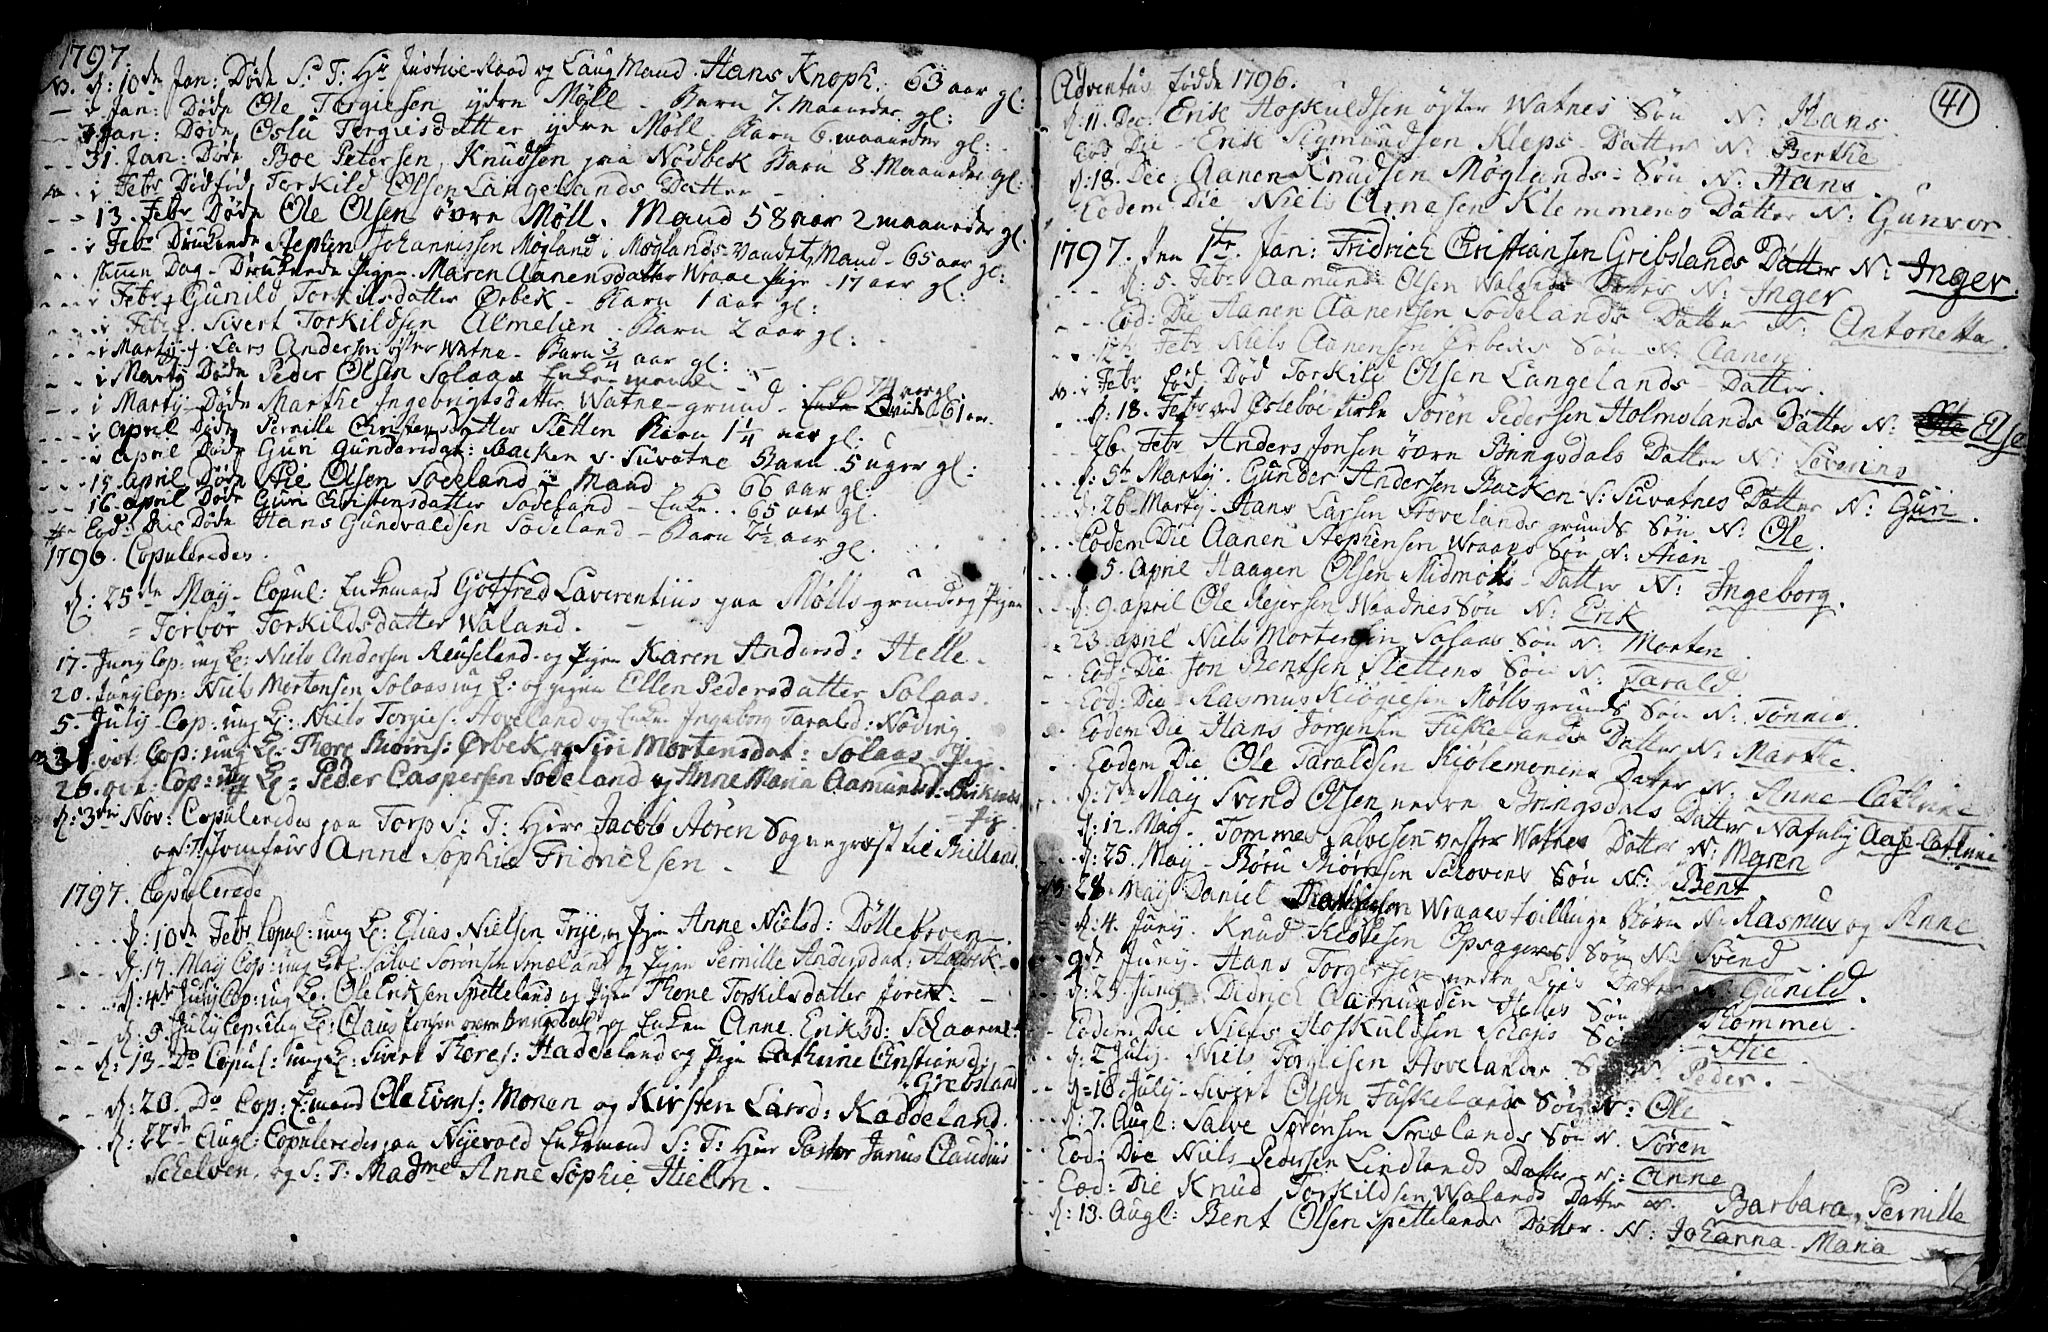 1797.
d: 10de Jan: Døde S: T: Hr Justice-Raad og Laug Mand. Hans Knoph. 63 aar gl:
— i Jan: Døde Ole Torgiesen ydre Møll — Barn 7. Maaneder gl:
Jan: Døde Torgiesdatter ydre Møll. Barn 6. maaneder gl:
— 31. Jan: Døde Boe Petersen, Knudsen paa Nødbek Barn 8. Maaneder gl:
i Febr Dødfød Torkild Olsen Langelands Datter
— 13. Febr Døde Ole Olsen øvre Møll. Mand 58 aar 2 maaneder gl.
i Febr Stephen Johannissen Møgland i Møglands-Vandet, Mand — 65 aar gl:
Dag — Pigen Maren Aanensdatter Wraae Pige — 17 aar gl:
i Febr Gunild Torkilsdatter Ørbek — Barn 1 aar gl:
i Febr. Sivert Torkildsen Almelien. Barn 2 aar gl:
i Martij Lars Andersen øster Watne — Barn 3/4 aar gl:
i Martij Døde Peder Olsen Solaas Enke-mand — 74 aar gl
i Martij — Døde Marthe Ingebrigtsdatter Watne-grund — Qvinde 61 aar
i April Døde Pernille Christensdatter Stetten Barn 1 1/4 aar gl:
i April Døde Guri Gundersdat: Backen v. Suvatne Barn. 5 uger gl:
— 15 april Døde Olsen Sodeland Mand 66 aar gl:
— 16. april Døde Guri Christensdatter Sodeland — Enke. 65 aar gl.
Eod: Die Døde Hans Gundvaldsen Sodeland — Barn 2 1/2 aar gl.
1796. Copuleredes.
d: 25de May — Copul: Enkemand Gotfred Laverentius paa Mølls-grund og Pigen
= Torbor Torkildsdatter Waland.
17. Junij Cop: ung K: Niels Andersen Reuseland — og Pigen Karen Andersd: Helle.
20. Junij Cop: Niels Mortensen Solaas ung K: og pigen Ellen Pedersdatter Solaas.
5. Julij — Cop: ung K: Niels Torgies: Hoveland og Enken Ingeborg Taralsd: Nøding.
31. oct: Cop: ung K: Thore Biørns: Ørbek og Siri Mortensdat: Solaas. Pige.
26. oct. Cop: ung K: Peder Caspersen Sodeland og Anne Maria Aamundsd:
d: 3die Nov: Copuleredes paa Torp S: T: Herr Jacob Støren Sogneprest til
og S: T: Jomfrue Anne Sophie Fridrichsen.
1797. Copulerede
d: 10de Febr Copul: ung K: Elias Nielsen Trye, og Pigen Anne Nielsd: Dølleboen
d: 17. May Cop: ung K. Salve Sørensen Smæland og Pigen Pernille Andersdat:
d: 4de Julij Cop: ung K: Ole Eriksen Spetteland og Pigen Thone Torkilsdatter
d: 9. Julij Cop: ung K: Claus Jonsen øvre Bringsdal og Enken Anne Eriksd:
d: 13. Do Copul: ung K: Sivert Thores: Haddeland og Pigen Cathrine Christiansd:
Grebsland
d: 20. Do Cop: E:mand Ole Evens: Monen og Kirsten Larsd: Kaddeland.
d: 22de Augl: Copuleredes paa Nyevold Enkemand S: T: Herr Pastor Janus Claudius
Schelven, og S: T: Madme Anne Sophie Hielm.
41
Adventus fødde 1796.
d: 11. Dec: Erik Hoskuldsen øster Watnes Søn N: Hans.
Eod Die — Erik Sigmundsen Kleps — Datter N: Berthe
d: 18. Dec: Aanen Knudsen Møglands — Søn N: Hans.
Eodem Die — Niels Arnesen Klemmens Datter N: Gunvor.
1797. den 1ste Jan: Fridrich Christiansen Gribslands Datter N: Inger.
d: 5. Febr Aamund Olsen Walands Datter N: Inger
Eod: Die Aanen Aanensen Sodelands Datter N: Antonetta
12te Febr Niels Aanensen Ørbeks Søn N: Aanen
i Febr Eod: Død Torkild Olsen Langelands — Datter.
d: 18. Febr ved Øslebøe kirke Søren Pedersen Holmelands Datter N: Else
26. Febr Anders Jonsen øvre Bringsdals Datter N: Severine
d: 5te Martij. Gunder Andersen Backen v: Suvatnes Datter N: Guri.
d: 26. Martij — Hans Larsen Hovelands grunds Søn N: Ole.
Eodem Die Aanen Stephensen Wraaes Søn N: Stian
5. April Haagen Olsen Midmølls — Datter N: Ingeborg.
d: 9. april Ole Reiersen Waadnes Søn N: Erik
23. april Niels Mortensen Solaas Søn N: Morten
Eod: Die Jon Bentsen Stettens Søn N: Tarald.
Eod: Die — Rasmus Mølls grunds Søn N: Tønnis.
Eodem Die Hans Jørgensen Fuskelands Datter N: Marthe.
Eodem Die Ole Taraldsen Kiølemonens Datter N: Anne-Cathrine
d: 7de May Svend Olsen nedre Bringsdals Datter N. Aase Cathrine
d: 12. May. Tommes Salvesen vester Watnes Datter N: Meren
d: 25. May — Børu Biørnsen Schovens Søn N: Bent
28. May Daniel Wraaes Tvillinge Børn N: Rasmus og Anne
d: 4. Junij. Knud Opsagers Søn N: Svend.
9de Junij. Hans Torgersen nedre Datter N: Gunild.
d: 25. Junij Didrich Aamundsen Helles Søn Tommes
Eodem Die Niels Hoskuldsen Søn N: Stie
d: 2 Julij. Niels Torgiesen Hovelandes Søn N. Peder.
d: 16. Julij — Sivert Olsen Fuskelands Søn N: Ole
d: 7. Augl: Salve Sørensen Smælands Søn N. Søren
Eod: Die Niels Pedersen Lindlands Datter N: Anne
Eod: Die Knud Torkildsen Walands Datter N. Barbara, Pernille
d: 13. Augl: Bent Olsen Spettelands Datter. N: Johanna Maria